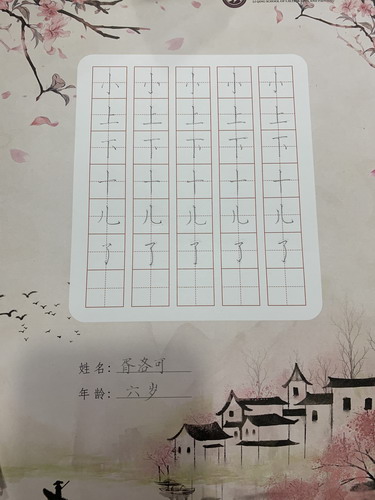 小 小 小 小 小
上 上 上 上 上
下 下 下 下 下
十 十 十 十 十
儿 儿 儿 儿 儿
了 了 了 了 了
姓名：胥洛可
年龄：六岁